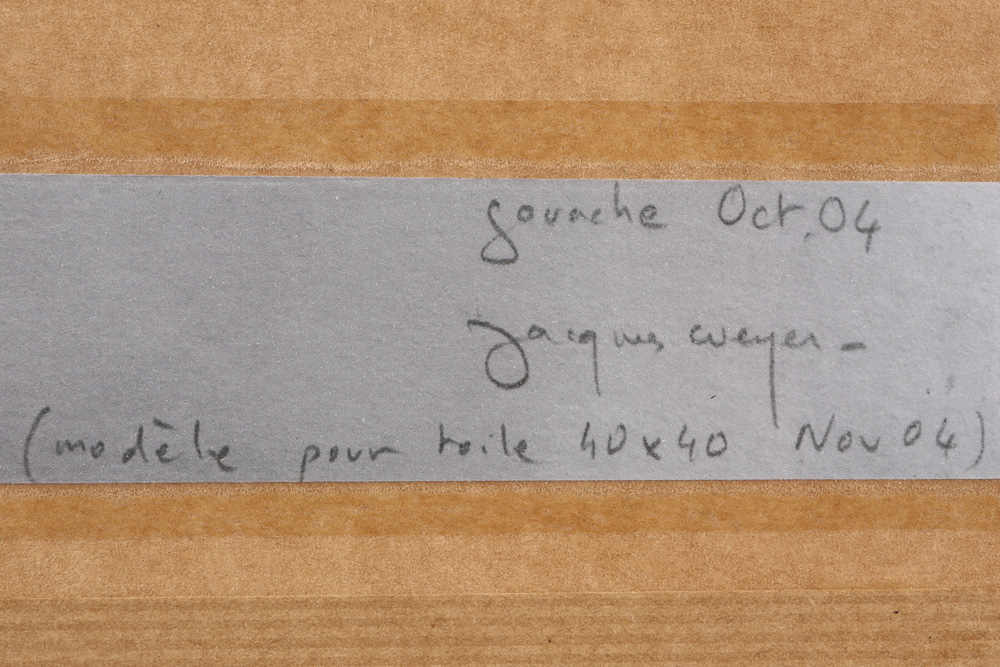 gouache Oct. 04
Jacques Weyer -
(modèle pour toile 40x40 Nov 04)